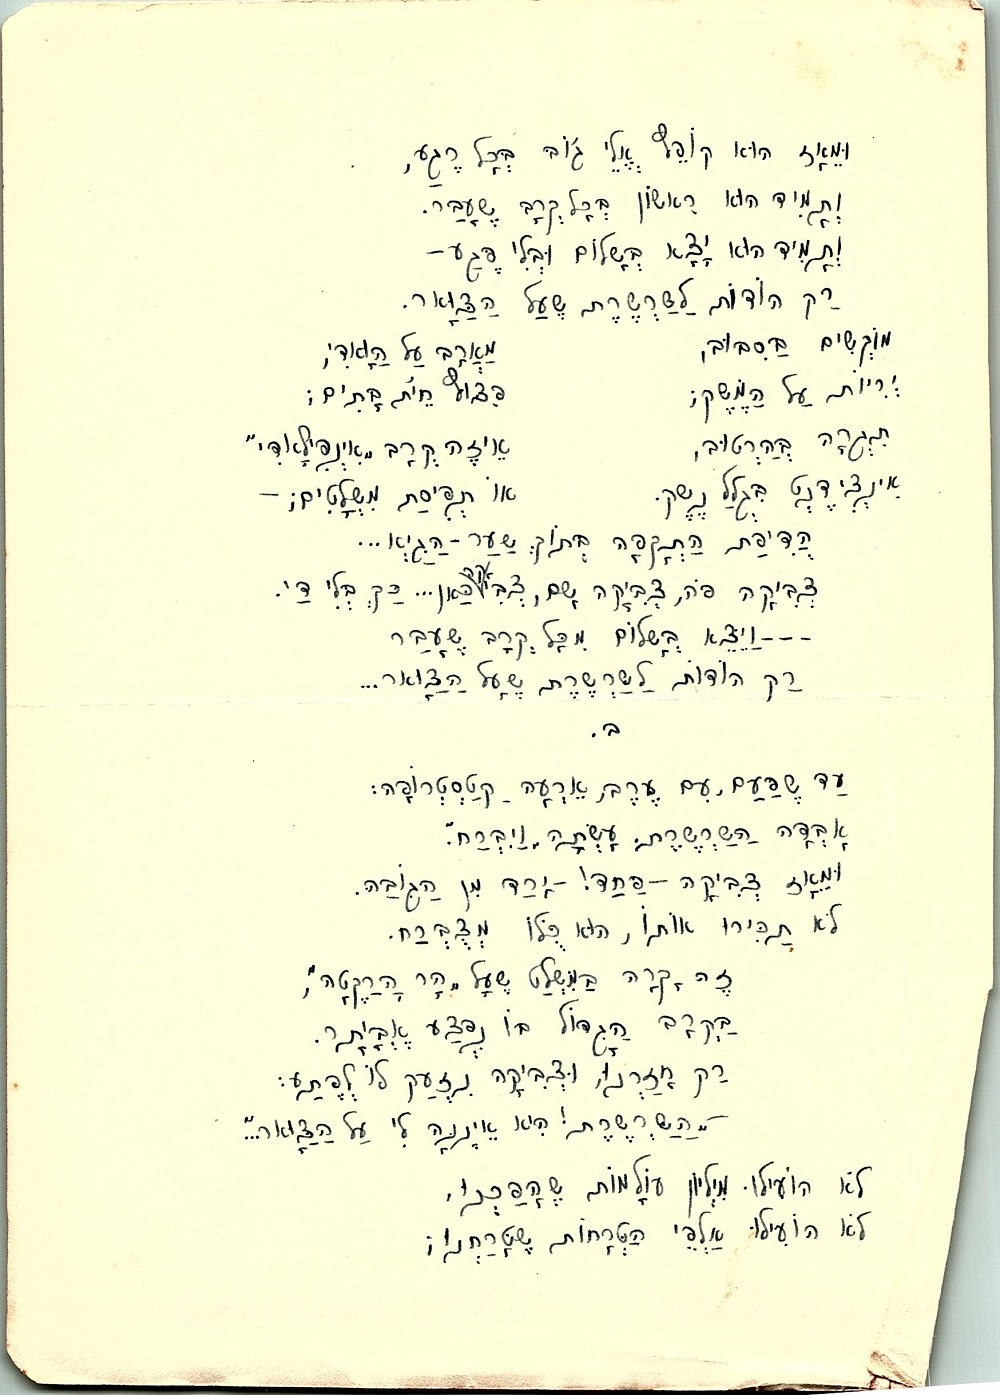 וּמֵאָז הוּא קוֹפֵץ אֱלֵי ג'וֹב בְּכָל רֶגַע,
וְתָמִיד הוּא רִאשׁוֹן בְּכָל קְרָב שֶׁעָבַר.
וְתָמִיד הוּא יָצָא בְּשָׁלוֹם וּבְלִי פֶּגַע –
רַק הוֹדוֹת לַשַּׁרְשֶׁרֶת שֶׁעַל הַצַּוָּאר.
מוֹקְשִׁים בַּסִּבוּב,
יְרִיוֹת עַל הַמֶּשֶׁק;
תִּגְרָה בְּהַרְטוּב,
אִינְצִידֶנְט בִּגְלַל נֶשֶׁק.
מַאֲרָב עַל הַוָּאדִי;
פִּצּוּץ חֵית בָּתִים;
אֵיזֶה קְרָב „אִינְפִילָאדִי"
אוֹ תְּפִיסַת מִשְׁלָטִים; –
הֲדִיפַת הַתְקָפָה בְּתוֹךְ שַׁעַר-הַגַּיְא...
צְבִיקָה פֹּה, צְבִיקָה שָׁם, צְבִיקָה כַּאן... כַּךְ בְּלִי דַּי.
---וַיֵּצֵא בְּשָׁלוֹם מִכָּל קְרָב שֶׁעָבַר
רַק הוֹדוֹת לַשַּׁרְשֶׁרֶת שֶׁעָל הַצַּוָּאר...
ב.
עַד שֶׁפַּעַם, עִם עֶרֶב, אֵרְעָה קַטַסְטְרוֹפָה:
אָבְדָה הַשַּׁרְשֶׁרֶת. עָשְׂתָה „וַיִבְרַח".
וּמֵאָז צְבִיקָה – פַּחַד! – יָרַד מִן הַגּוֹבַה.
לֹא תַכִּירוּ אוֹתוֹ, הוּא כֻּלּוֹ מְצֻבְרַח.
זֶה קָרָה בַּמִּשְׁלָט שֶׁעָל „הָר הָרַקֶטָה",
בַּקְרָב הַגָּדוֹל בּוֹ נִפְצַע אֶבְיָתָר.
רַק חָזַרְנוּ, וּצְבִיקָה נִזְעַק לוֹ לְפֶתַע:
– „הַשַּׁרְשֶׁרֶת! הִיא אֵינֶנָּה לִי עַל הַצַּוָּאר..."
לֹא הוֹעִילוּ מִלְיוֹן עוֹלָמוֹת שֶׁהָפַכְנוּ,
לֹא הוֹעִילוּ אַלְפֵי הַטְּרָחוֹת שֶׁטָּרַחְנוּ;